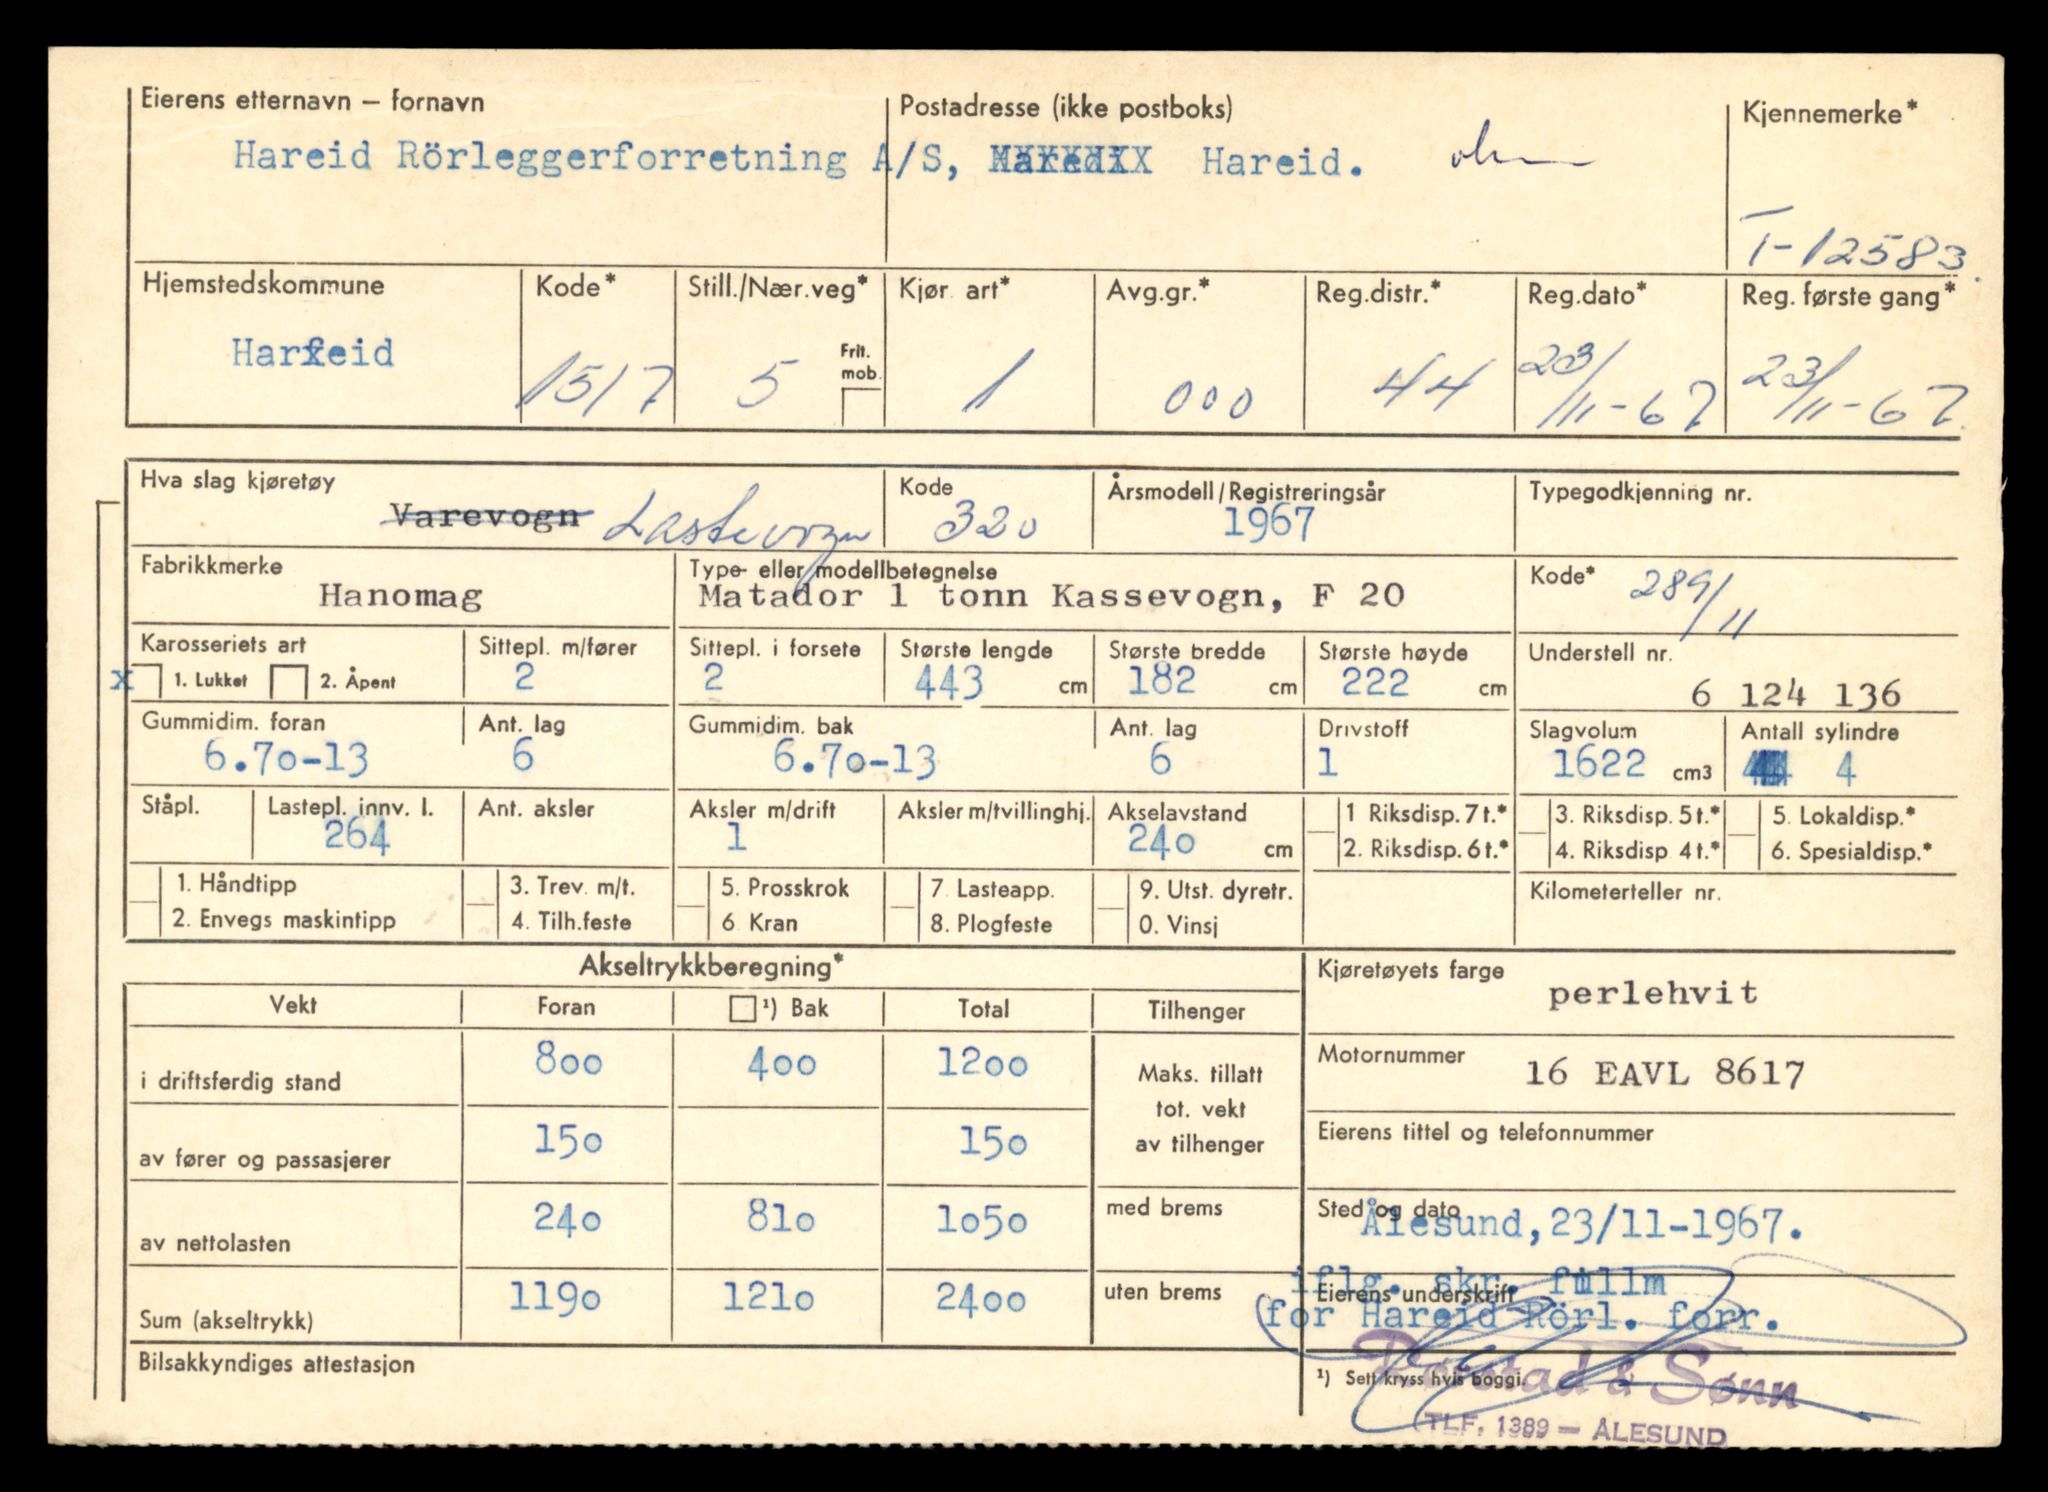 Eierens etternavn – fornavn Postadresse (ikke postboks) Kjennemerke*
Hareid Rörleggerforretning A/S, Hareid.
T-12583
Hjemstedskommune Kode* Still./Nær.veg* Kjør. art* Avg.gr.* Reg.distr.* Reg.dato* Reg. første gang*
Hareid 1517 5 Frit. mob. 1 000 44 23/11-67 23/11-67
Hva slag kjøretøy Kode Årsmodell/Registreringsår Typegodkjenning nr.
Varevogn Lastevogn 320 1967
Fabrikkmerke Type- eller modellbetegnelse Kode*
Hanomag Matador 1 tonn Kassevogn, F 20 289/11
Karosseriets art Sittepl. m/fører Sittepl. i forsete Største lengde Største bredde Største høyde Understell nr.
x 1. Lukket 2. Åpent 2 2 443 cm 182 cm 222 cm 6 124 136
Gummidim. foran Ant. lag Gummidim. bak Ant. lag Drivstoff Slagvolum Antall sylindre
6.70-13 6 6.70-13 6 1 1622 cm3 4
Ståpl. Lastepl. innv. l. Ant. aksler Aksler m/drift Aksler m/tvillinghj. Akselavstand 1 Riksdisp. 7 t.* 3. Riksdisp. 5 t.* 5. Lokaldisp.*
264 1 240 cm 2. Riksdisp. 6 t.* 4. Riksdisp 4 t.* 6. Spesialdisp.*
1. Håndtipp 3. Trev. m/t. 5. Prosskrok 7. Lasteapp. 9. Utst. dyretr. Kilometerteller nr.
2. Envegs maskintipp 4. Tilh.feste 6 Kran 8. Plogfeste 0. Vinsj
Akseltrykkberegning* Kjøretøyets farge
perlehvit
Vekt Foran ¹) Bak Total Tilhenger
i driftsferdig stand 800 400 1200 Maks. tillatt
Motornummer
16 EAVL 8617
tot. vekt
av fører og passasjerer 150 150 av tilhenger
Eierens tittel og telefonnummer
av nettolasten 240 810 1050 med brems
Sted og dato
Ålesund, 23/11-1967.
iflg. skr. fullm
Sum (akseltrykk) 1190 1210 2400 uten brems
Eierens underskrift
for Hareid Rörl. forr.
Bilsakkyndiges attestasjon
¹) Sett kryss hvis boggi.
& Sønn
TLF. 1389 — ÅLESUND